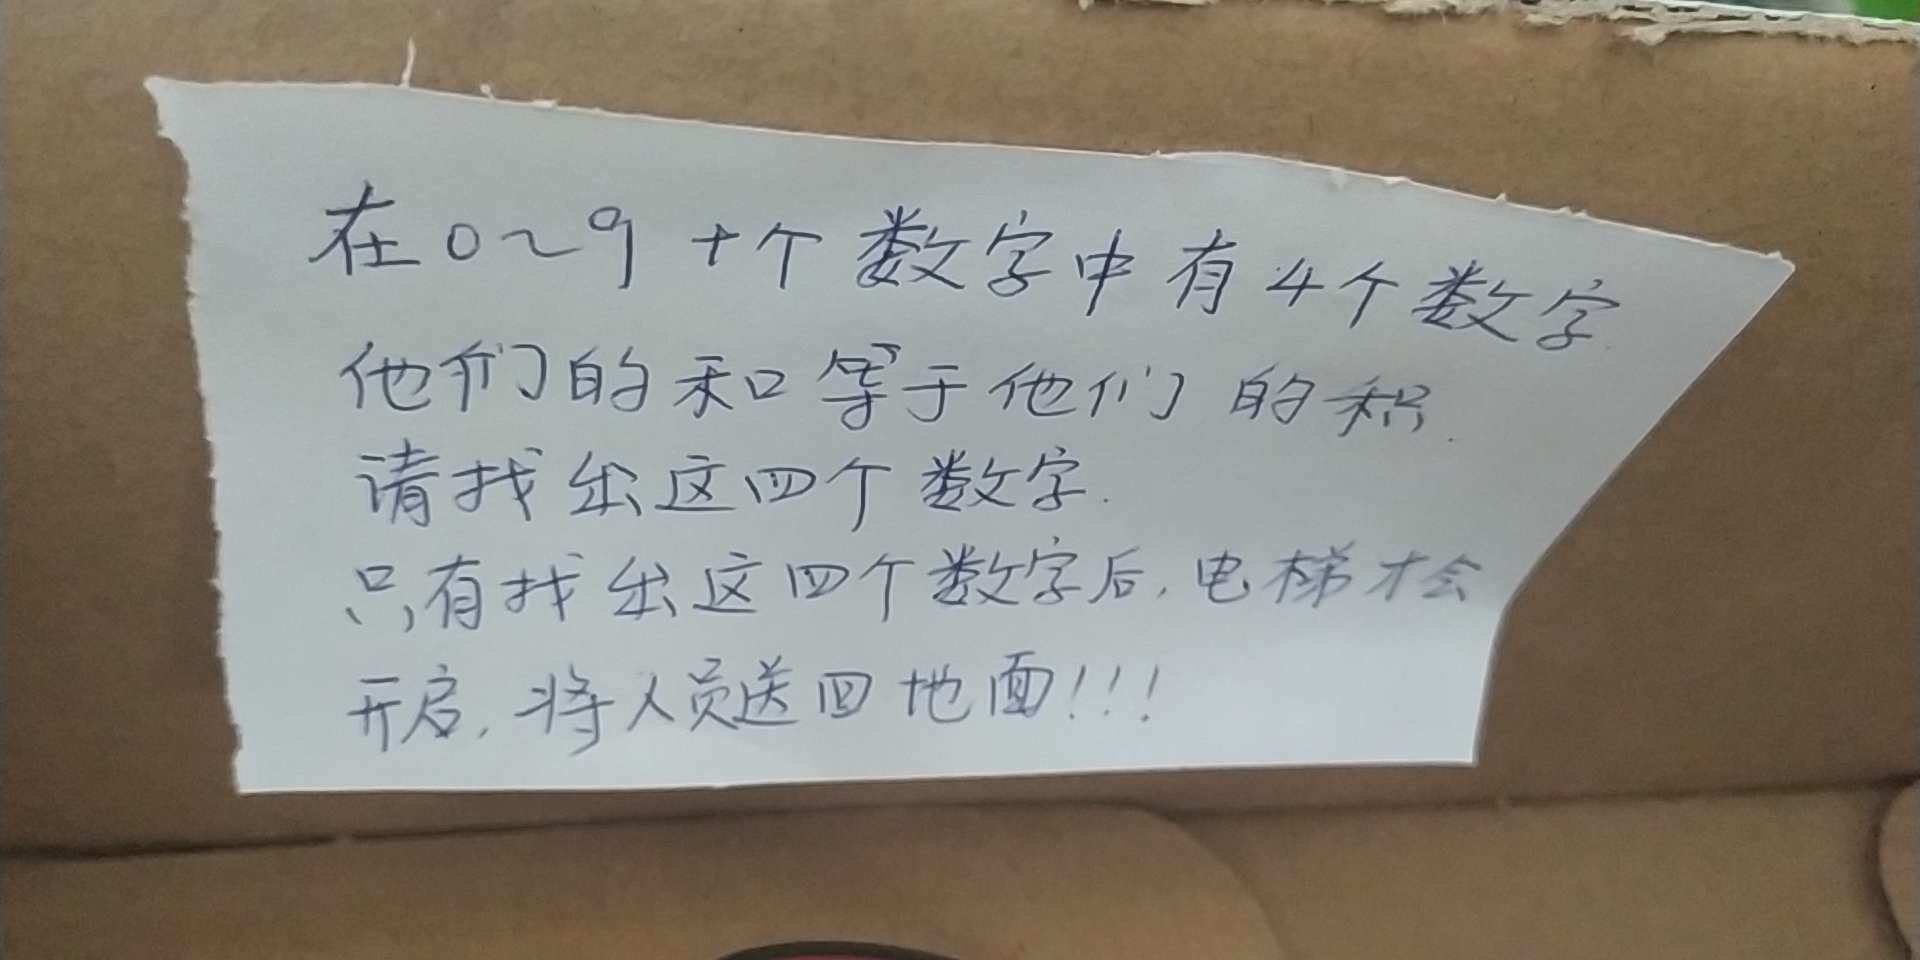 在0~9十个数字中有4个数字
他们的和等于他们的积.
请找出这四个数字.
只有找出这四个数字后,电梯才会
开启,将人员送回地面!!!